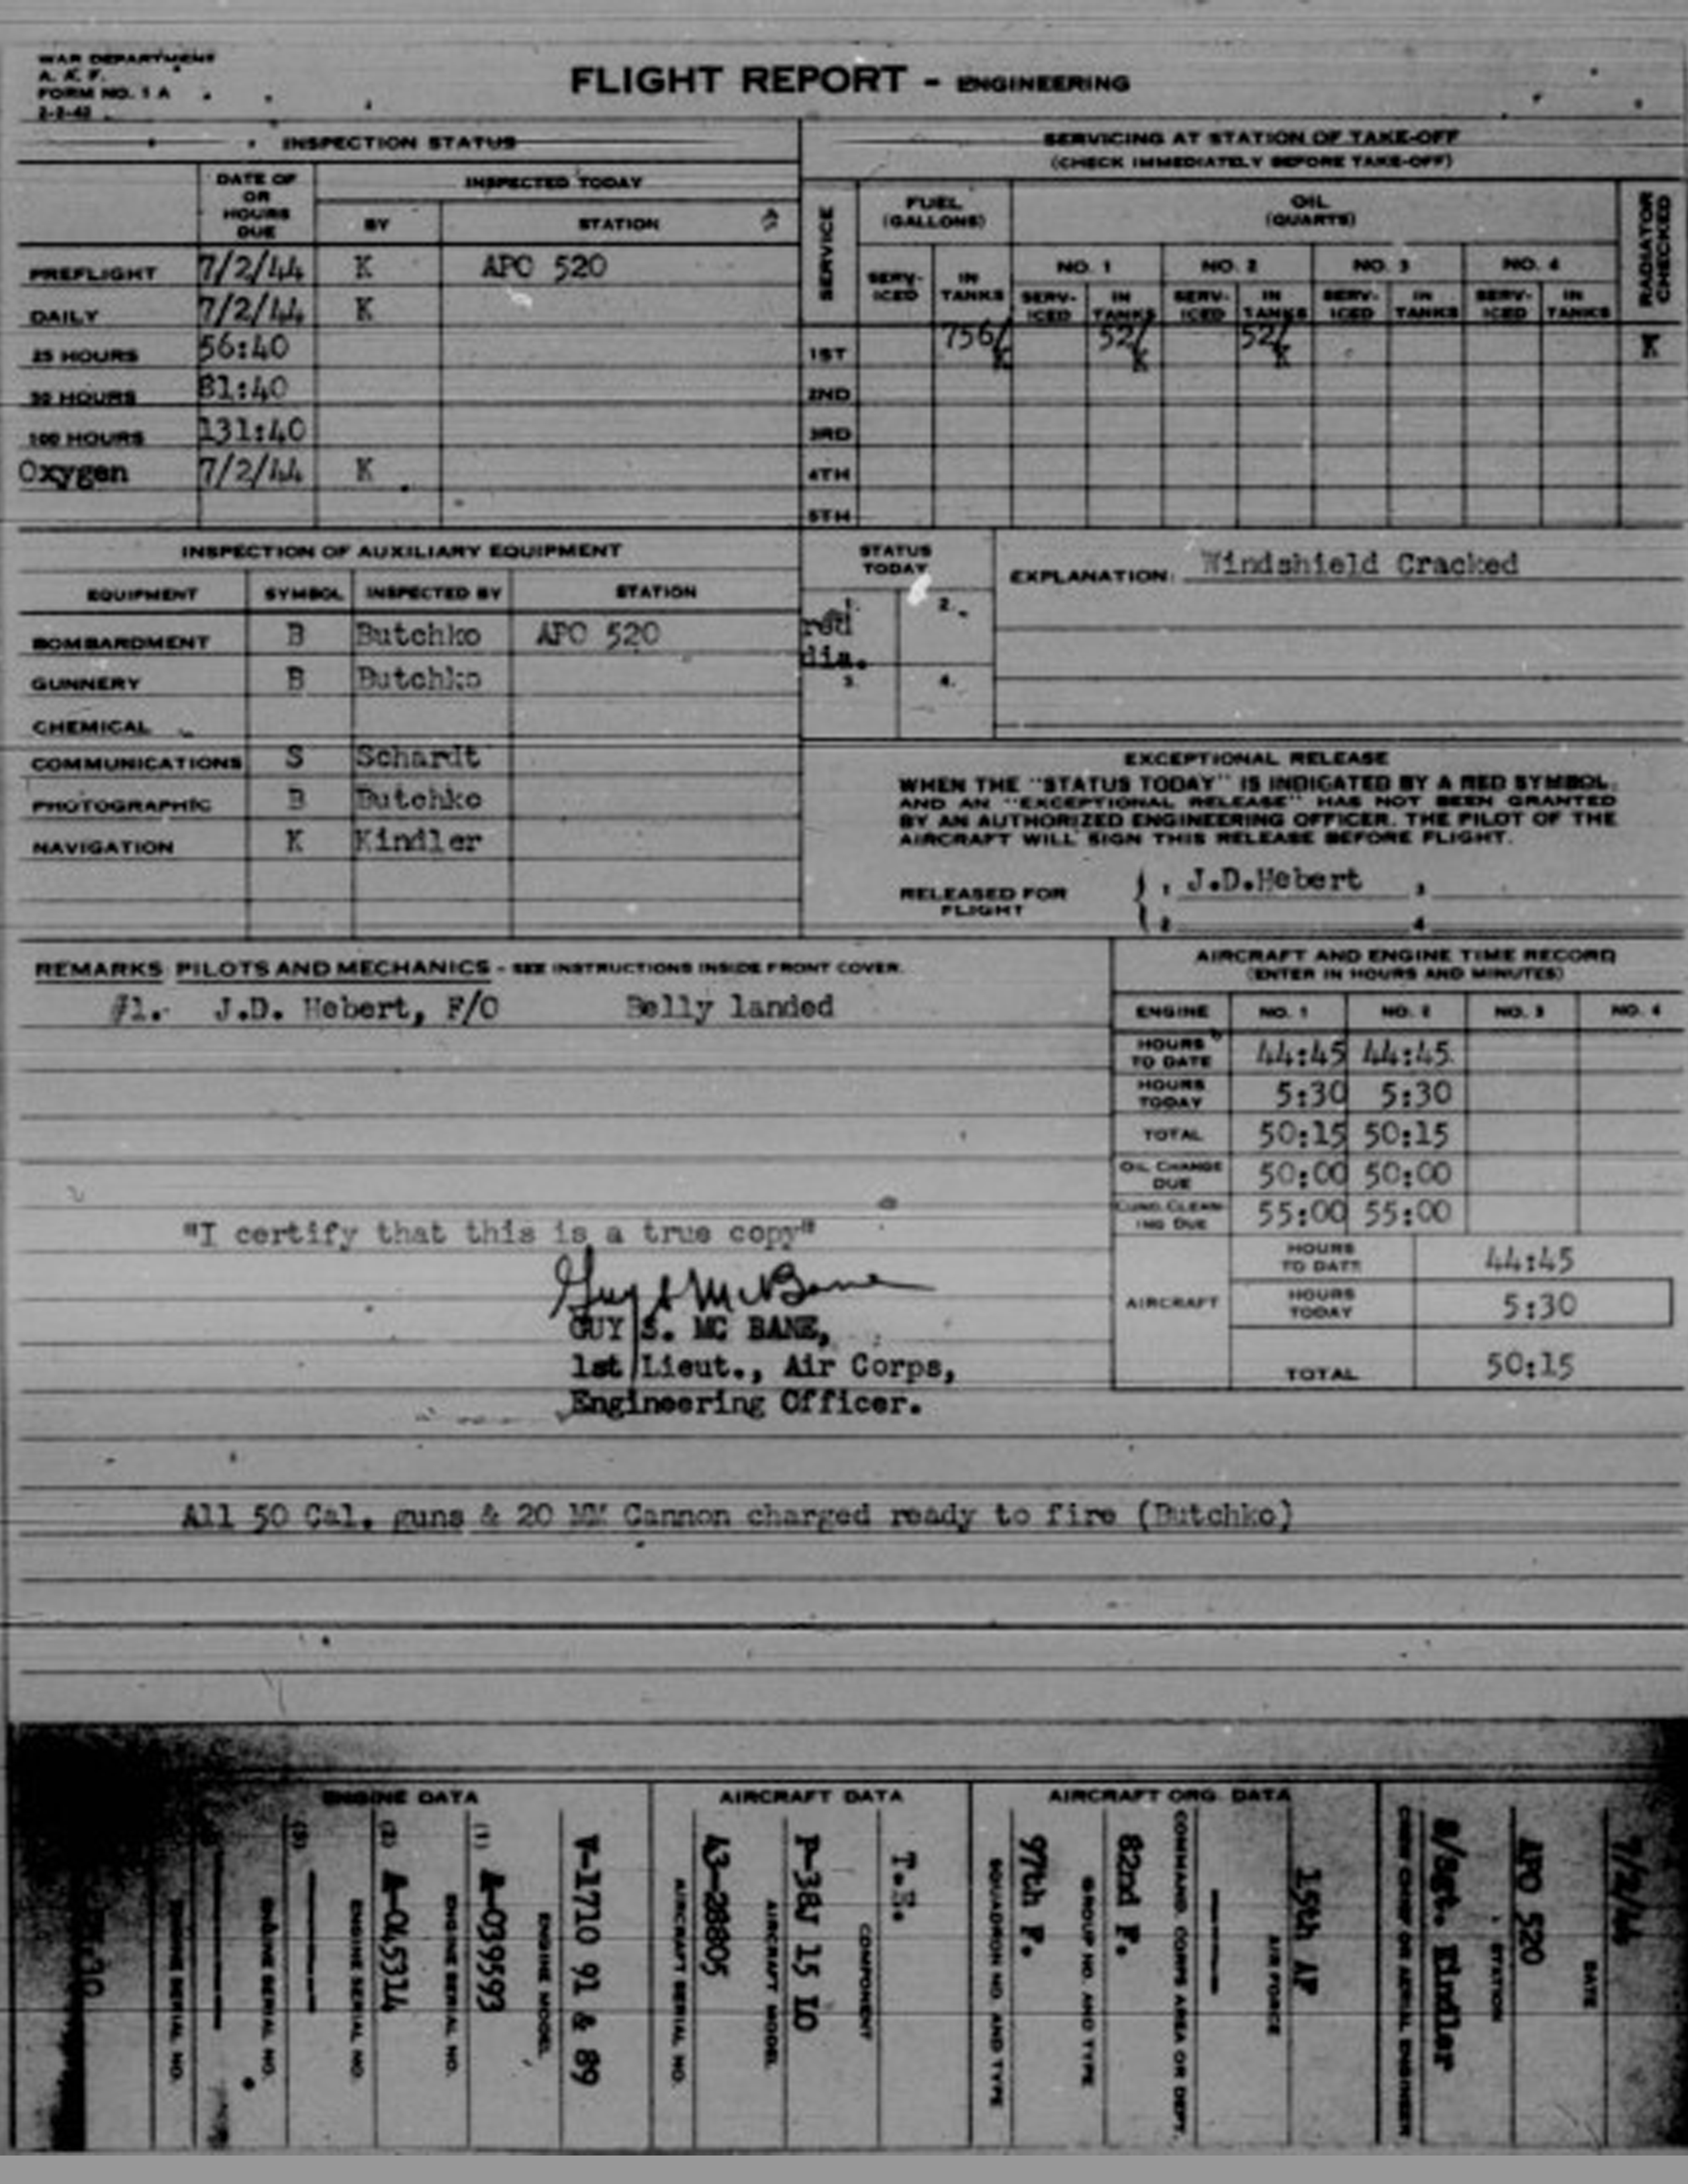 WAR DEPARTMENT
A. A. F.
FORM NO. 1 A
2-2-42
FLIGHT REPORT - ENGINEERING
INSPECTION STATUS
DATE OF OR HOURS DUE
INSPECTED TODAY
BY STATION
PREFLIGHT 7/2/44 K APO 520
DAILY 7/2/44 K
25 HOURS 56:40
50 HOURS 81:40
100 HOURS 131:40
Oxygen 7/2/44 K
SERVICING AT STATION OF TAKE-OFF
(CHECK IMMEDIATELY BEFORE TAKE-OFF)
SERVICE
FUEL (GALLONS)
OIL (QUARTS)
RADIATOR CHECKED
NO. 1 NO. 2 NO. 3 NO. 4
SERV-ICED IN TANKS SERV-ICED IN TANKS SERV-ICED IN TANKS SERV-ICED IN TANKS SERV-ICED IN TANKS
1ST 756/K 52/K 52/K K
2ND
3RD
4TH
5TH
INSPECTION OF AUXILIARY EQUIPMENT
EQUIPMENT SYMBOL INSPECTED BY STATION
BOMBARDMENT B Butchko APO 520
GUNNERY B Butchko
CHEMICAL
COMMUNICATIONS S Schardt
PHOTOGRAPHIC B Butchko
NAVIGATION K Kindler
STATUS TODAY
1. 2.
red
dia.
3. 4.
EXPLANATION: Windshield Cracked
EXCEPTIONAL RELEASE
WHEN THE "STATUS TODAY" IS INDICATED BY A RED SYMBOL,
AND AN "EXCEPTIONAL RELEASE" HAS NOT BEEN GRANTED
BY AN AUTHORIZED ENGINEERING OFFICER. THE PILOT OF THE
AIRCRAFT WILL SIGN THIS RELEASE BEFORE FLIGHT.
RELEASED FOR FLIGHT
1 J.D.Hebert 3
2 4
REMARKS PILOTS AND MECHANICS - SEE INSTRUCTIONS INSIDE FRONT COVER.
#1. J.D. Hebert, F/O Belly landed
AIRCRAFT AND ENGINE TIME RECORD
(ENTER IN HOURS AND MINUTES)
ENGINE NO. 1 NO. 2 NO. 3 NO. 4
HOURS TO DATE 44:45 44:45
HOURS TODAY 5:30 5:30
TOTAL 50:15 50:15
OIL CHANGE DUE 50:00 50:00
CUNO CLEAN-ING DUE 55:00 55:00
AIRCRAFT
HOURS TO DATE 44:45
HOURS TODAY 5:30
TOTAL 50:15
"I certify that this is a true copy"
Guy S McBane
GUY S. MC BANE,
1st Lieut., Air Corps,
Engineering Officer.
All 50 Cal. guns & 20 MM Cannon charged ready to fire (Butchko)
ENGINE DATA
AIRCRAFT DATA
AIRCRAFT ORG. DATA
7/2/44
DATE
APO 520
STATION
S/Sgt. Kindler
CREW CHIEF OR AERIAL ENGINEER
15th AF
AIR FORCE
COMMAND CORPS AREA OR DEPT.
82nd F.
GROUP NO. AND TYPE
97th F.
SQUADRON NO. AND TYPE
T.E.
COMPONENT
P-38J 15 LO
AIRCRAFT MODEL
43-28805
AIRCRAFT SERIAL NO.
V-1710 91 & 89
ENGINE MODEL
(1) A-039593
ENGINE SERIAL NO.
(2) A-045314
ENGINE SERIAL NO.
(3)
ENGINE SERIAL NO.
ENGINE SERIAL NO.